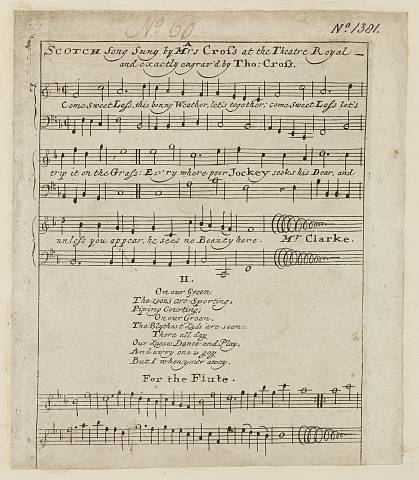 No. 60
No. 1391.
A
SCOTCH Song Sung by Mrs Cross at the Theatre Royal
and exactly engrav'd by Tho: Cross.
Come sweet Lass, this bonny Weather, let's together; come sweet Lass let's
trip it on the Grass: Ev'ry where poor Jockey seeks his Dear, and
unless you appear, he sees no Beauty here. Mr Clarke.
II.
On our Green
The are Sporting,
Piping Courting;
On our Green.
The Blythest Lads are seen:
There all day
Our Lasses Dance and Play,
And ev'ry one is gay
But I when your away.
For the Flute.